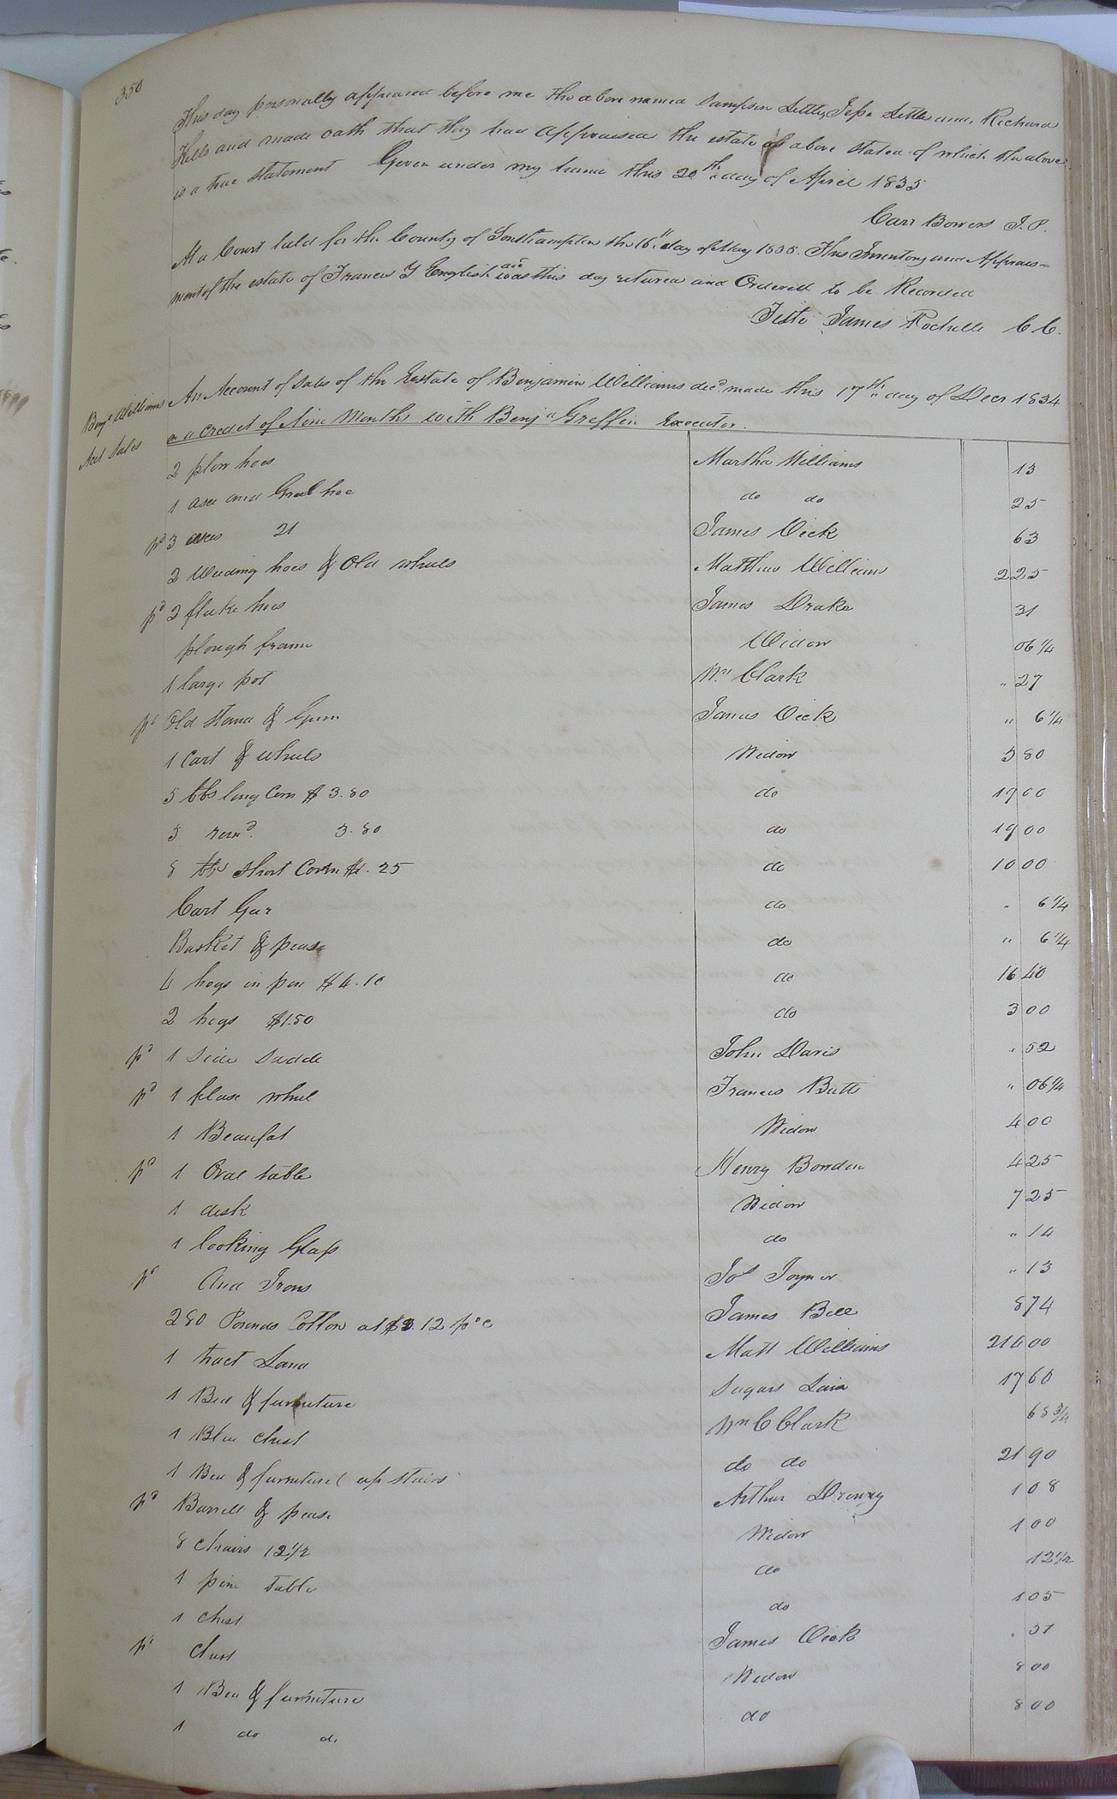 350
This day personally appeared before me the above named Sampson Little, Jesse Little and Richard
Kello and made oath that they had appraised the estate as above stated of which the above
is a true statement Given under my hand this 20th day of April 1835
Carr Bowers J. P.
At a Court held for the County of Southampton the 18th day of May 1835. This Inventory and Apprais-
ment of the estate of Francis Y English decd was this day returned and Ordered to be Recorded
Teste James Rochelle C. C.
Benj. Williams
Act Sales
An Account of Sales of the Estate of Benjamin Williams decd made this 17th day of Decr 1834
on a credit of Nine Months with Benja Griffin Executor.
2 plow hoes Martha Williams 13
1 axe and Grub hoe do do 25
pd 3 axes 21 James Vick 63
2 Weeding hoes & Old wheels Matthew Williams 2 25
pd 2 fluke hoes James Drake 31
plough frame Widow 06 1/4
1 large pot Wm Clark " 27
pd Old Stand & Gum James Vick " 6 1/4
1 Cart & wheels Widow 5 80
5 bbs long Corn $ 3.80 do 19 00
5 remd. 3.80 do 19 00
8 bbs Short Corn $1.25 do 10 00
Cart Gear do " 6 1/4
Basket & pease do " 6 1/4
4 hogs in pen $4.10 do 16 40
2 hogs $1.50 do 3 00
pd 1 Side Saddle John Davis " 52
pd 1 flax wheel Francis Butts " 06 1/4
1 Beaufat Widow 4 00
pd 1 Oval table Henry Bowden 4 25
1 desk Widow 7 25
1 looking Glass do " 14
pd And Irons Jos Joyner " 13
280 Pounds Cotton at $3.12 pr c James Bell 8 74
1 tract Land Matt Williams 214 00
1 Bed & furniture Sugars Lain 17 60
1 Blue chest Wm C Clark 68 3/4
1 Bed & furniture up stairs do do 21 90
pd Barrell & pease Arthur Drewry 1 08
8 chairs 12 1/2 Widow 1 00
1 pine table do 12 1/2
1 chest do 1 05
pd chest James Vick " 51
1 Bed & furniture Widow 8 00
1 do do do 8 00